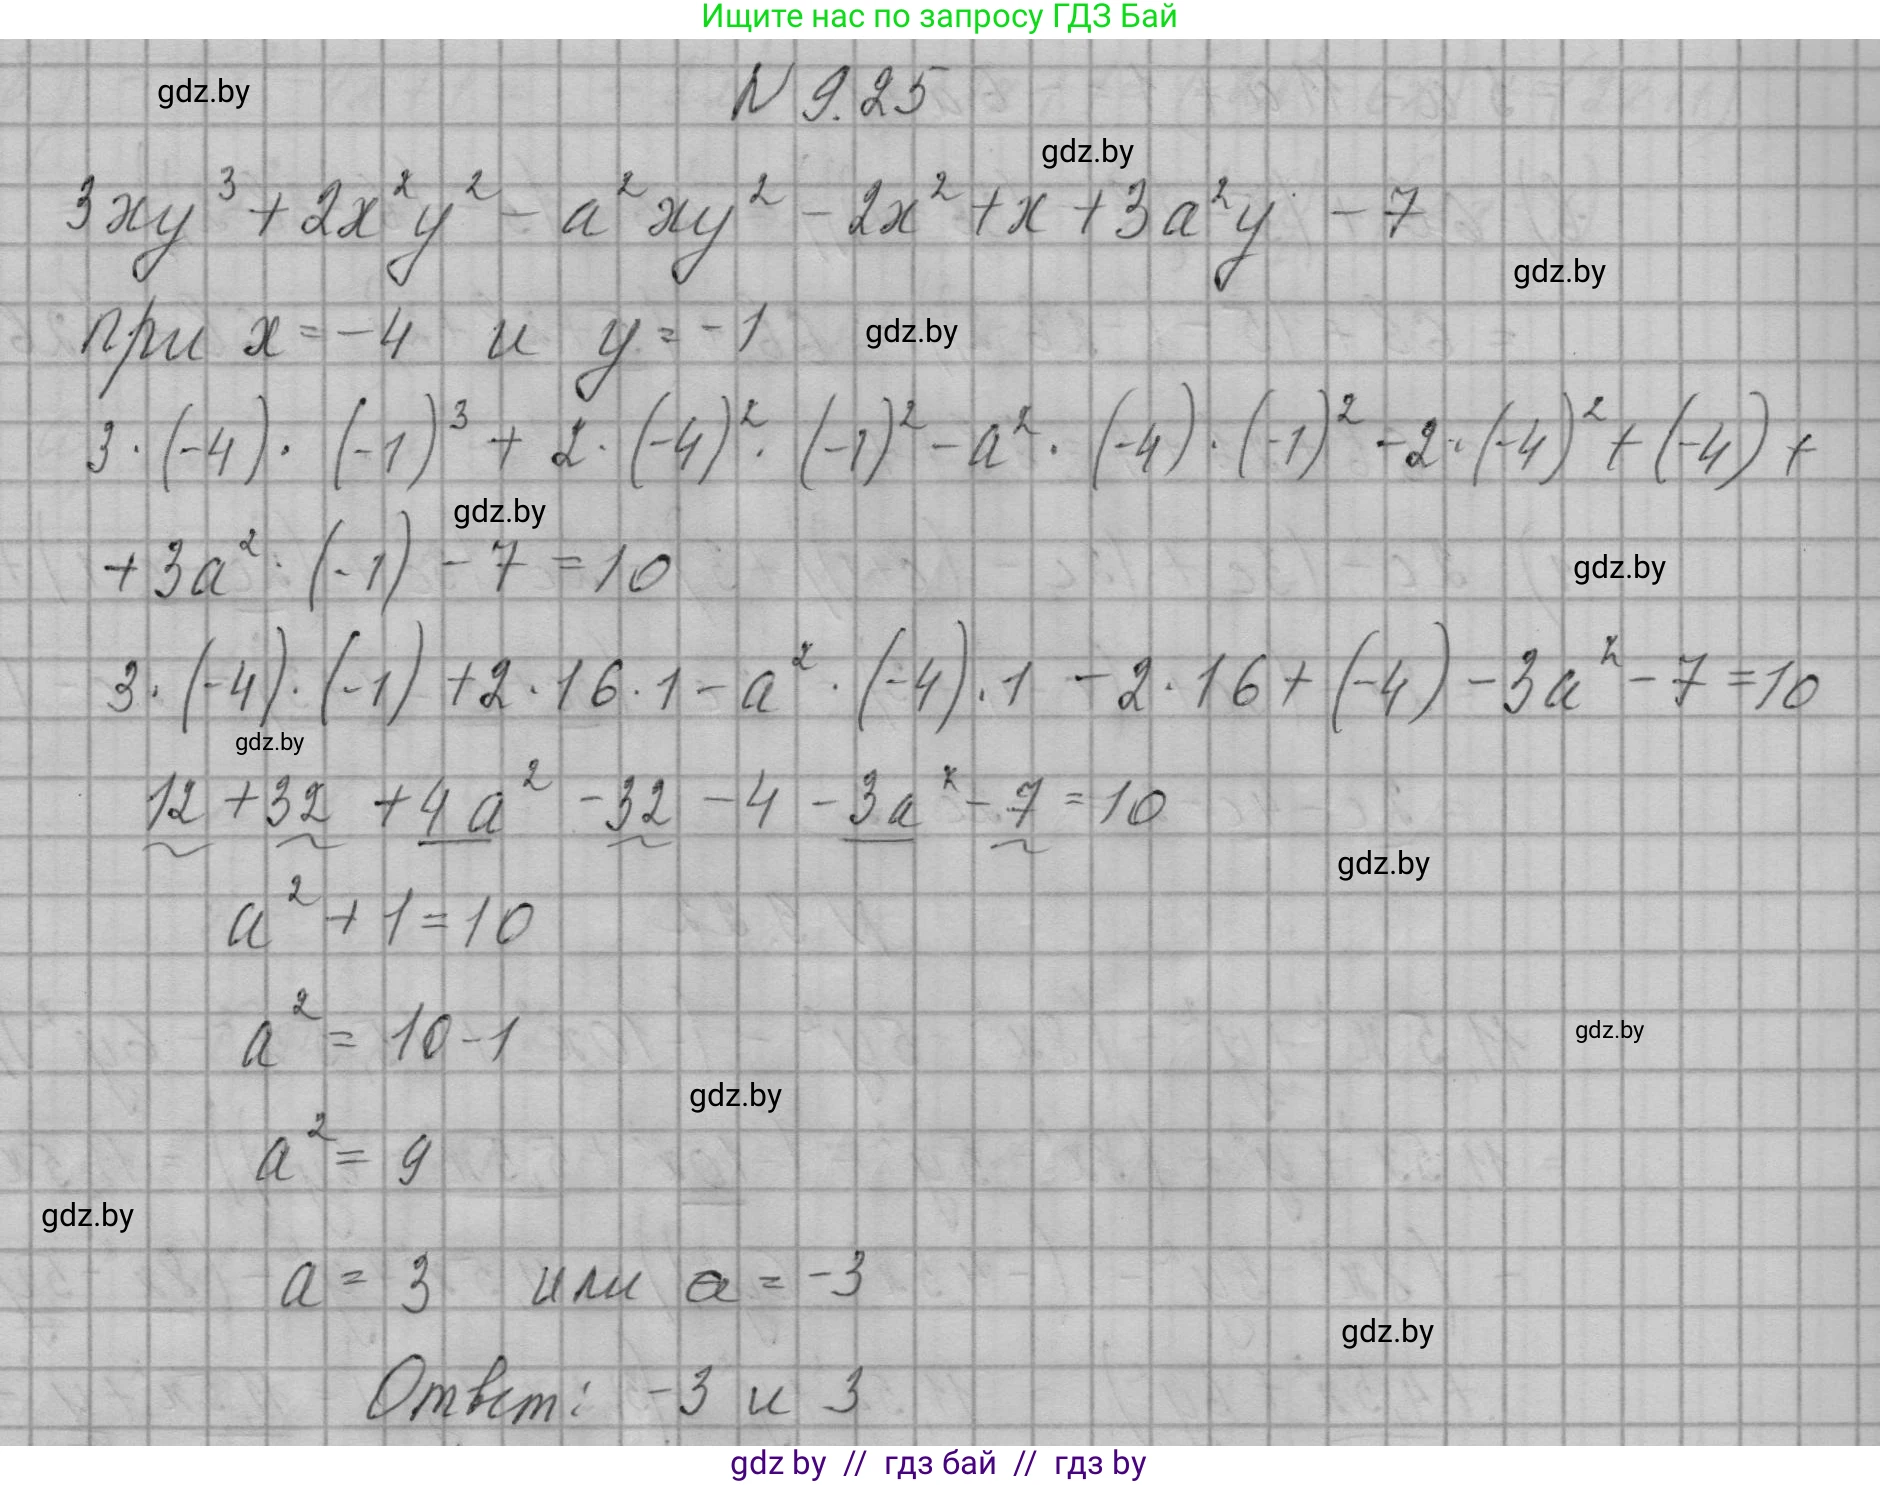 Ищите нас по запросу ГДЗ Бай
gdz.by
N 9.25
gdz.by
3xy³ + 2x²y² - a²xy² - 2x² + x + 3a²y - 7
gdz.by
при x = -4 и y = -1 gdz.by
3 · (-4) · (-1)³ + 2 · (-4)² · (-1)² - a² · (-4) · (-1)² - 2 · (-4)² + (-4) +
gdz.by
+ 3a² · (-1) - 7 = 10
gdz.by
3 · (-4) · (-1) + 2 · 16 · 1 - a² · (-4) · 1 - 2 · 16 + (-4) - 3a² - 7 = 10
gdz.by
12 + 32 + 4a² - 32 - 4 - 3a² - 7 = 10
gdz.by
a² + 1 = 10
a² = 10 - 1
gdz.by
gdz.by
a² = 9
gdz.by
a = 3 или a = -3
gdz.by
Ответ: -3 и 3
gdz by // гдз бай // гдз by